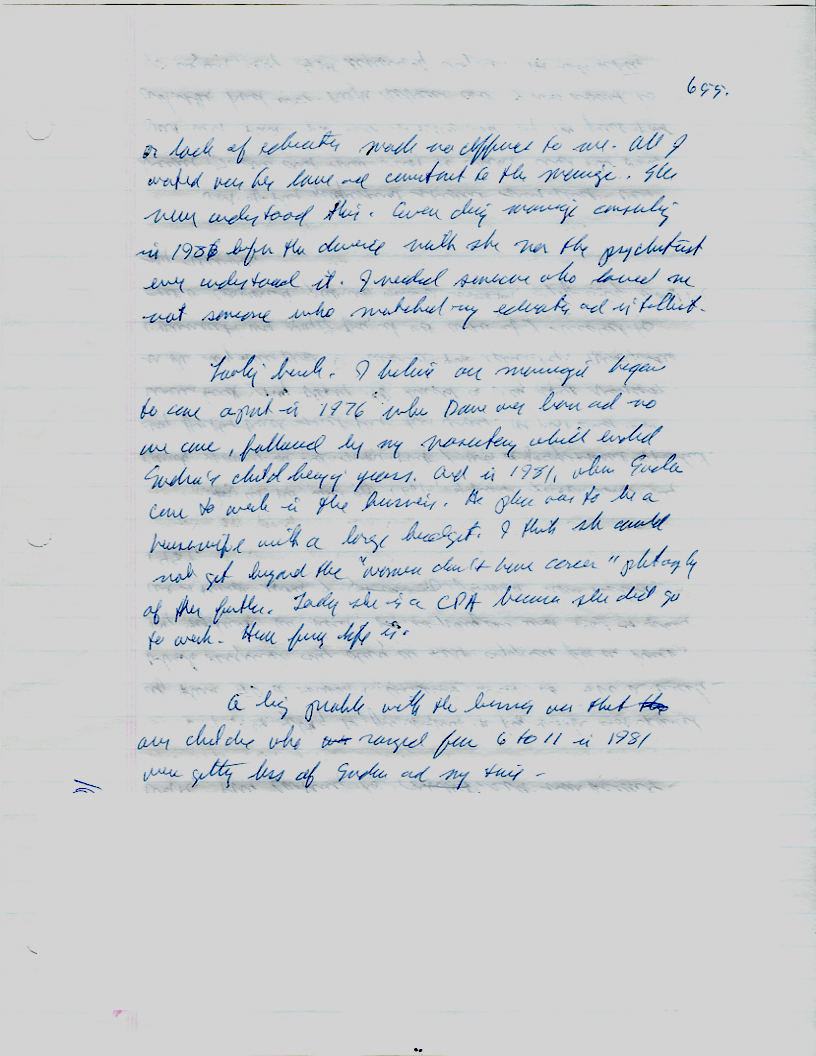 699.
or lack of education made no difference to me. All I
wanted was her love and commitment to the marriage. She
never understood this. Even during marriage counseling
in 1986 before the divorce neither she nor the psychiatrist
ever understood it. I needed someone who loved me
not someone who matched my education and intellect.
Looking back. I believe our marriage began
to come apart in 1976 when Dave was born and no
one came, followed by my vasectomy which ended
Gudra's child bearing years. And in 1981, when Gudra
came to work in the business. Her plan was to be a
housewife with a large budget. I think she could
not get beyond the "women don't have career" philosophy
of her father. Today she is a CPA because she did go
to work. How funny life is.
A big problem with the business was that the
our children who ranged from 6 to 11 in 1981
were getting less of Gudra and my time -